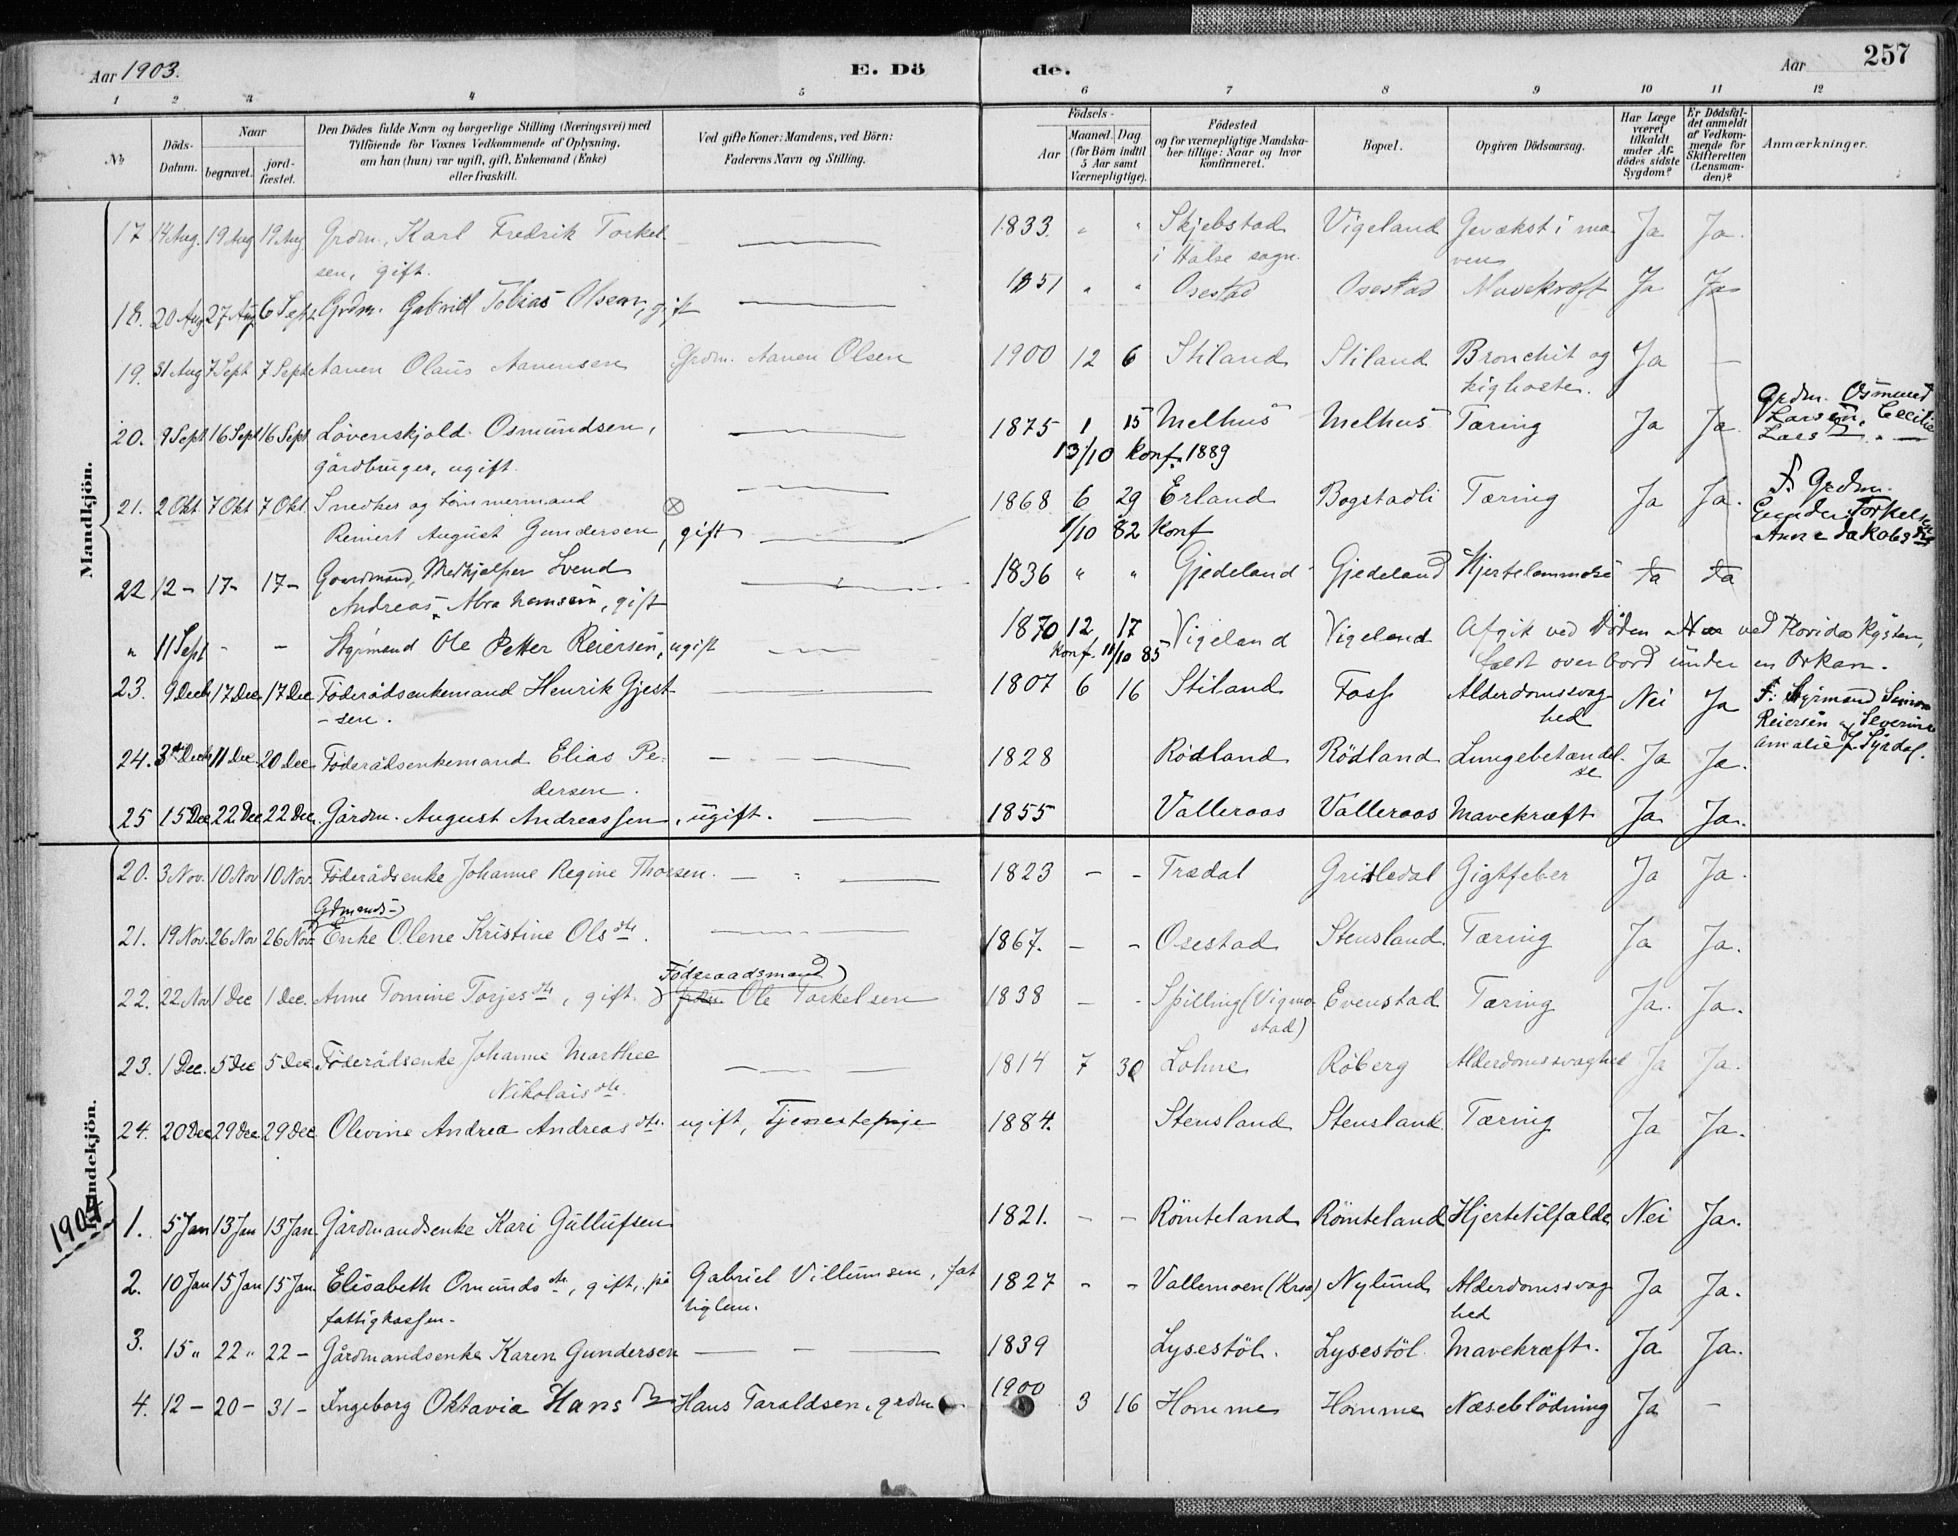 Aar 1903. E. Dö de. Aar 257
1 2 3 4 5 6 7 8 9 10 11 12
No
Döds-Datum.
Naar
begravet.
jord-fæstet.
Den Dödes fulde Navn og borgerlige Stilling (Næringsvei) med
Tilföiende for Voxnes Vedkommende af Oplysning,
om han (hun) var ugift, gift, Enkemand (Enke)
eller fraskilt.
Ved gifte Koner: Mandens, ved Börn:
Faderens Navn og Stilling.
Födsels-
Aar
Maaned. Dag
(for Börn indtil
5 Aar samt
Værnepligtige).
Födested
og for værnepligtige Mandska-
ber tillige: Naar og hvor
konfirmeret.
Bopæl.
Opgiven Dödsaarsag.
Har Læge
været
tilkaldt
under Af-
dödes sidste
Sygdom?
Er Dödsfal-
det anmeldt
af Vedkom-
mende for
Skifteretten
(Lensman-
den)?
Anmærkninger.
Mandkjön.
17 14 Aug. 19 Aug 19 Aug Grdm. Karl Fredrik Torkel- 1833 " " Skjebstad Vigeland Gevækst i ma Ja Ja.
sen, gift. i Halse sogn. ven
18. 20 Aug 27 Aug 6 Sept Grdm. Gabriel Tobias Olsen, gift 1851 " " Osestad Osestad Mavekræft Ja Ja
19. 31 Aug 7 Sept 7 Sept Aanen Olaus Aanensen Grdm. Aanen Olsen 1900 12 6 Stiland Stiland Bronchit og Ja —
kighoste.
20. 9 Sept 16 Sept 16 Sept Løvenskjold Osmundsen, 1875 1 15 Melhus Melhus Tæring Ja Ja Grdm. Osmund
Larsen, Cecilie
Lars
gårdbruger, ugift. 13/10 Konf. 1889
21. 2 Okt. 7 Okt 7 Okt. Snedker og tømmermand ⊗ 1868 6 29 Erland Bogstadli Tæring Ja Ja. F. Grdm.
Reinert August Gundersen, gift 1/10 82 Konf Torkelsen
Anne Jakobs
22 12 - 17 - 17 - Gaardmand, Medhjælper Svend 1836 " " Gjedeland Gjedeland Hjertelammelse Ja Ja
Andreas Abrahamsen, gift
" 11 Sept - - Styrmand Ole Petter Reiersen, ugift 1870 12 17 Vigeland Vigeland Afgik ved Døden ved Florida Kysten,
Konf. 11/10 85 faldt overbord under en Orkan.
23. 9 Dech 17 Dec 17 Dec Føderådsenkemand Henrik Gjest 1807 6 16 Stiland Foss Alderdomssvag Nei Ja F: Styrmand Simon
-sen. hed Reiersen og Severine
Amalie f. Syrdal.
24. 3 Dech 11 Dec 20 Dec Føderådsenkemand Elias Pe- 1828 Rödland Rödland Lungebetændel- Ja Ja.
dersen. se
25 15 Dec 22 Dec 22 Dec. Gårdm. August Andreassen, ugift. 1855 Valleraas Valleraas Mavekræft Ja Ja.
Kvindekjön.
20. 3 Nov. 10 Nov 10 Nov. Føderådsenke Johanne Regine Thorsen. 1823 - - Trædal Grisledal Gigtfeber Ja Ja.
Gdmands-
21. 19 Nov. 26 Nov 26 Nov. Enke Olene Kristine Ols dtr. 1867. - - Osestad Stensland Tæring Ja Ja.
Føderaadsmand
22. 22 Nov 1 Dec 1 Dec. Anne Tomine Torjes dtr, gift. grdm Ole Torkelsen 1838 - - Spilling (Vigmo Evenstad Tæring Ja. Ja.
stad)
23. 1 Dec. 5 Dec 5 Dec Føderådsenke Johanne Marthee 1814 7 30 Lohne Röberg Alderdomssvaghed Ja Ja.
Nikolais dtr.
24. 20 Dec 29 Dec 29 Dec Olevine Andrea Andreas dtr. ugift, Tjenestepige 1884. Stensland Stensland Tæring Ja Ja.
1904
1. 5 Jan 13 Jan 13 Jan. Gårdmandsenke Kari Gullufsen 1821. - - Römteland Römteland Hjertetilfælde Nei Ja.
2. 10 Jan 15 Jan 15 Jan. Elisabeth Omunds dtr., gift, på Gabriel Villumsen, fat 1827 - - Vallemoen (Kraa) Nylund Alderdomssvag Ja Ja.
fattigkassen. tiglem. hed
3. 15 " 22 " 22 - Gårdmandsenke Karen Gundersen 1839 Lysestöl. Lysestöl Mavekræft. Ja Ja.
4. 12 - 20 - 31 - Ingeborg Oktavia Hans dtr Hans Taraldsen, grdm 1900 3 16 Homme Homme Næseblödning Ja -